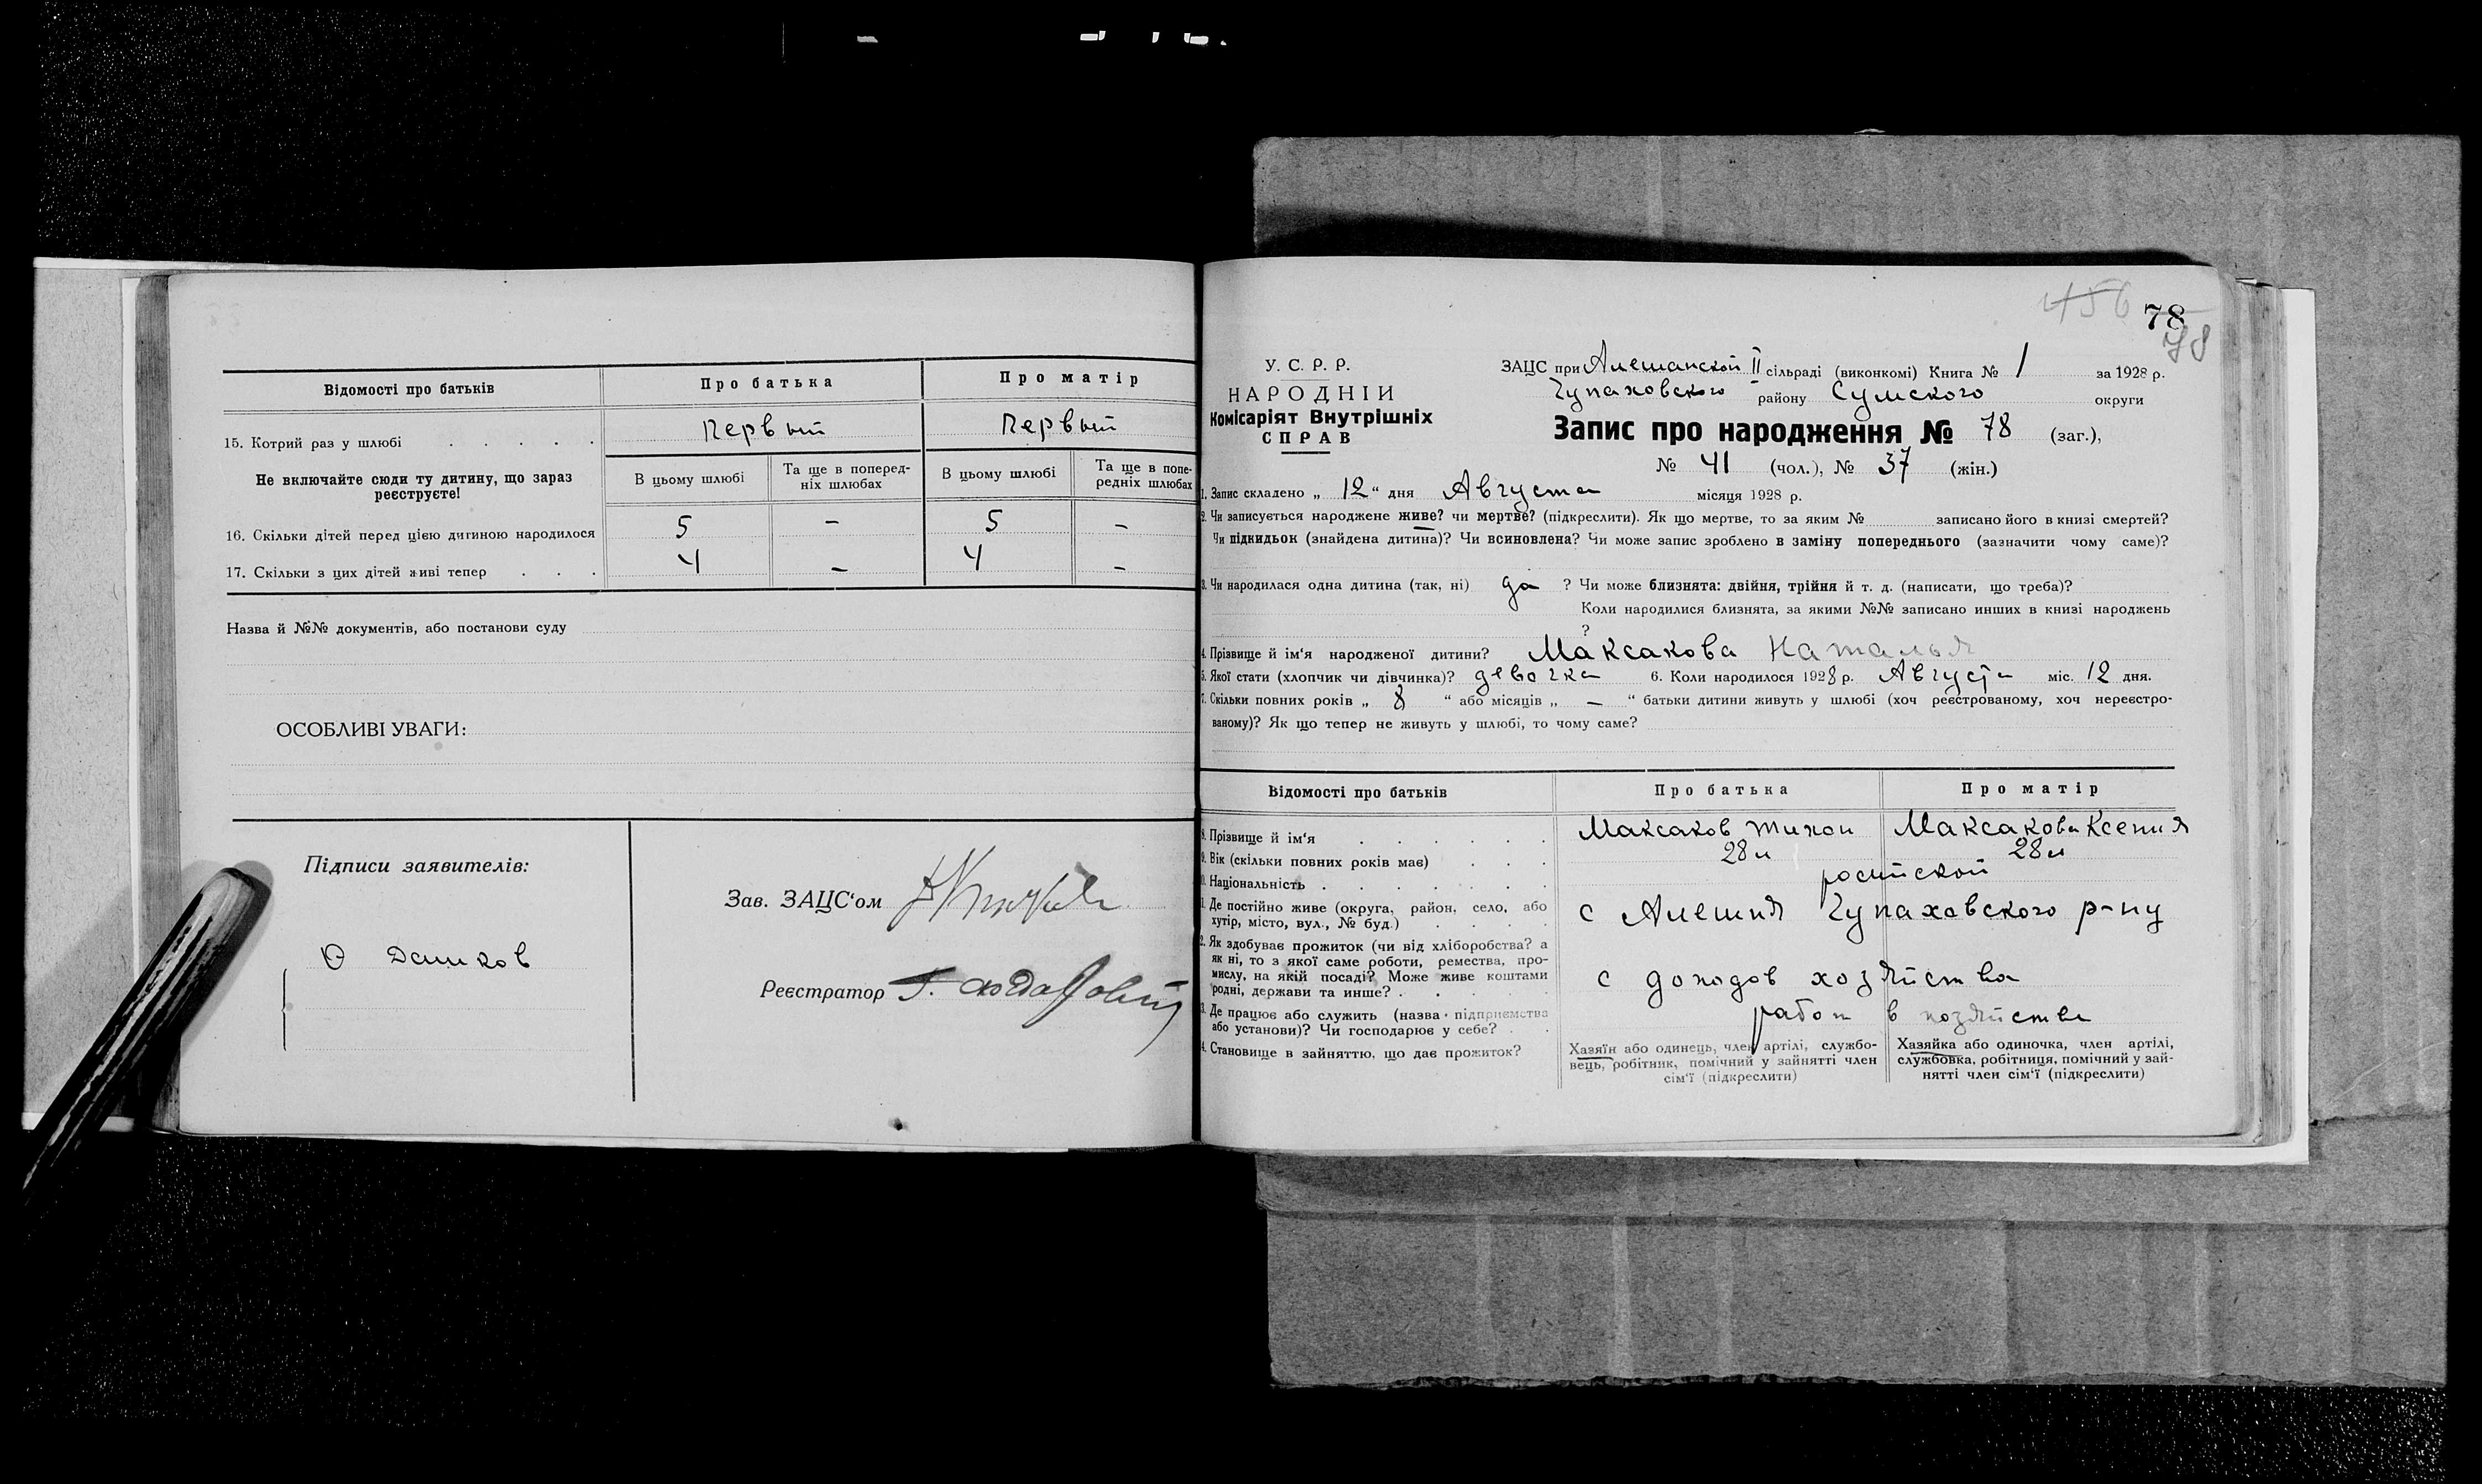 Відомості про батьків
Про батька
Про матір
15. Котрий раз у шлюбі
Первый
Первый
Не включайте сюди ту дитину, що зараз
реєструєте!
В цьому шлюбі
Та ще в поперед-
ніх шлюбах
В цьому шлюбі
Та ще в попе-
редніх шлюбах
16. Скільки дітей перед цією дитиною народилося
5 – 5 –
17. Скільки з цих дітей живі тепер
4 – 4 –
Назва й №№ документів, або постанови суду
ОСОБЛИВІ УВАГИ:
Підписи заявителів:
Зав. ЗАЦС‘ом
Реєстратор
456 78
78
У. С. Р. Р.
НАРОДНІЙ
Комісаріят Внутрішніх
СПРАВ
ЗАЦС при Алешанской II сільраді (виконкомі) Книга № 1 за 1928 р.
Чупаховского району Сумского округи
Запис про народження № 78 (заг.),
№ 41 (чол.), № 37 (жін.)
1. Запис складено „ 12 “ дня Августа місяця 1928 р.
2. Чи записується народжене живе? чи мертве? (підкреслити). Як що мертве, то за яким № записано його в книзі смертей?
Чи підкидьок (знайдена дитина)? Чи всиновлена? Чи може запис зроблено в заміну попереднього (зазначити чому саме)?
3. Чи народилася одна дитина (так, ні) да ? Чи може близнята: двійня, трійня й т. д. (написати, що треба)?
Коли народилися близнята, за якими №№ записано инших в книзі народжень
?
4. Прізвище й ім‘я народженої дитини? Максакова Наталья
5. Якої стати (хлопчик чи дівчинка)? девочка 6. Коли народилося 1928 р. Августа міс. 12 дня.
7. Скільки повних років „ 8 “ або місяців „ – “ батьки дитини живуть у шлюбі (хоч реєстрованому, хоч нереєстро-
ваному)? Як що тепер не живуть у шлюбі, то чому саме?
Відомості про батьків
Про батька
Про матір
8. Прізвище й ім‘я
Максаков Тихон
Максакова Ксения
9. Вік (скільки повних років має)
28 л
28 л
10. Національність
росийской
11. Де постійно живе (округа, район, село, або
хутір, місто, вул., № буд.)
с Алешня Чупаховского р-ну
12. Як здобуває прожиток (чи від хліборобства? а
як ні, то з якої саме роботи, ремества, про-
мислу, на якій посаді? Може живе коштами
родні, держави та инше?
с доходов хозяйства
13. Де працює або служить (назва підприємства
або установи)? Чи господарює у себе?
работ в хозяйстве
14. Становище в зайняттю, що дає прожиток?
Хазяїн або одинець, член артілі, службо-
вець, робітник, помічний у зайнятті член
сім‘ї (підкреслити)
Хазяйка або одиночка, член артілі,
службовка, робітниця, помічний у зай-
нятті член сім‘ї (підкреслити)